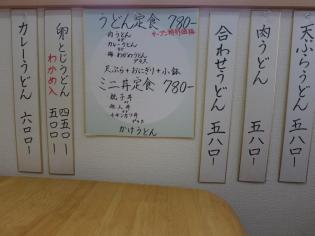 天ぷらうどん 五八〇ー
肉うどん 五八〇ー
合わせうどん 五八〇ー
うどん定食 780ー
オープン特別価格
肉うどん
or
カレーうどん
or
梅わかめうどん
プラス
天ぷら+おにぎり+小鉢
ミニ丼定食 780ー
親子丼
or
他人丼
or
プラス
かけうどん
卵とじうどん 四五〇ー
わかめ入 五〇〇ー
カレーうどん 六〇〇ー